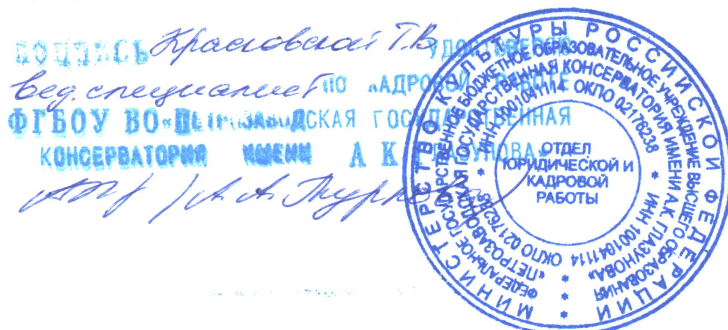 ПОДПИСЬ Красковской Т.В. УДОСТОВЕРЯЮ
вед. специалист ПО КАДРОВОЙ РАБОТЕ
ФГБОУ ВО «ПЕТРОЗАВОДСКАЯ ГОСУДАРСТВЕННАЯ
КОНСЕРВАТОРИЯ ИМЕНИ А К ГЛАЗУНОВА»
А. А.
МИНИСТЕРСТВО КУЛЬТУРЫ РОССИЙСКОЙ ФЕДЕРАЦИИ
ФЕДЕРАЛЬНОЕ ГОСУДАРСТВЕННОЕ БЮДЖЕТНОЕ ОБРАЗОВАТЕЛЬНОЕ УЧРЕЖДЕНИЕ ВЫСШЕГО ОБРАЗОВАНИЯ
«ПЕТРОЗАВОДСКАЯ ГОСУДАРСТВЕННАЯ КОНСЕРВАТОРИЯ ИМЕНИ А.К. ГЛАЗУНОВА»
ИНН 1001041114 ОКПО 02176238 * ИНН 1001041114 ОКПО 02176238
ОТДЕЛ
ЮРИДИЧЕСКОЙ И
КАДРОВОЙ
РАБОТЫ